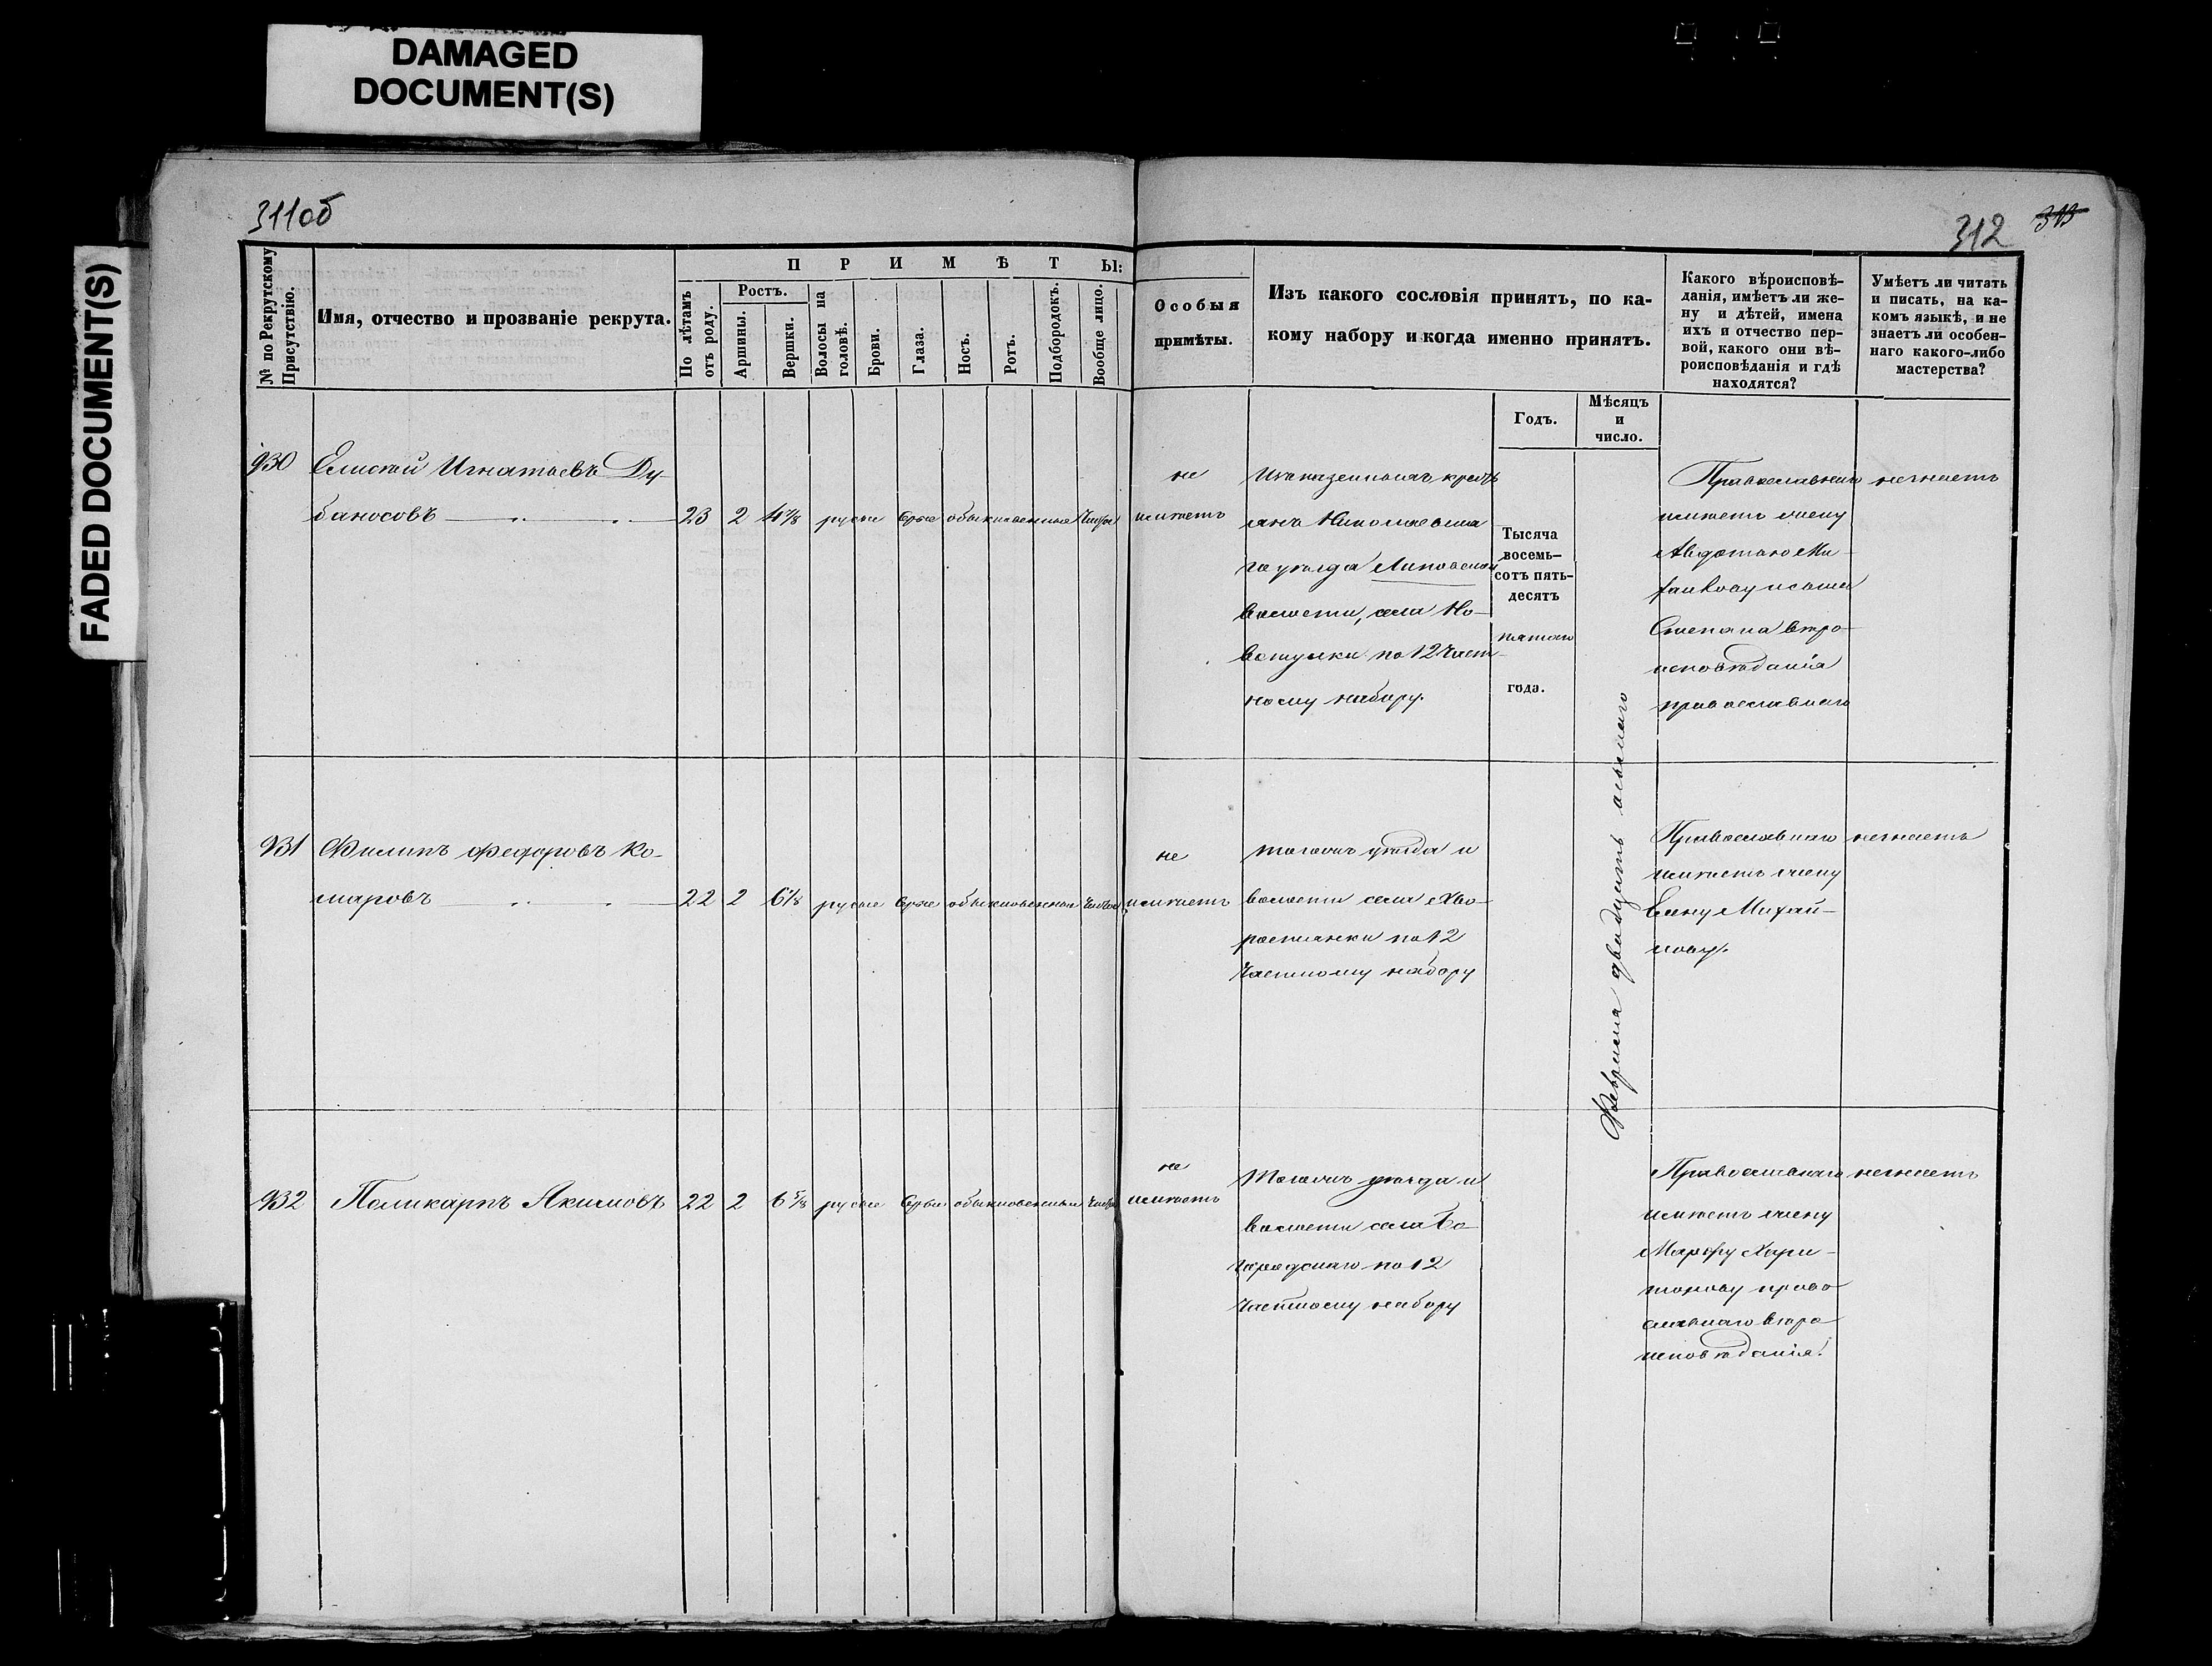 DAMAGED
DOCUMENT(S)
FADED DOCUMENT(S)
311об
312
313
№ по Рекрутскому
Присутствію.
Имя, отчество и прозваніе рекрута.
ПРИМѢТЫ:
По лѣтамъ
отъ роду.
Ростъ.
Аршины.
Вершки.
Волосы на
головѣ.
Брови.
Глаза.
Носъ.
Ротъ.
Подбородокъ.
Вообще лицо.
Особыя
примѣты.
Изъ какого сословія принятъ, по ка-
кому набору и когда именно принятъ.
Годъ.
Мѣсяцъ
и
число.
Какого вѣроисповѣ-
данія, имѣетъ ли же-
ну и дѣтей, имена
ихъ и отчество пер-
вой, какого они вѣ-
роисповѣданія и гдѣ
находятся?
Умѣетъ ли читать
и писать, на ка-
комъ языкѣ, и не
знаетъ ли особен-
наго какого-либо
мастерства?
930
Елисей Игнатьевъ Ду-
баносовъ
23 2 4 7/8 русые сѣрые обыкновенные чистое
не
имѣетъ
Изъ казенныхъ кресть
янъ Николаевска
го уѣзда Липовской
волости, села Но-
вотулки по 12 част-
ному набору.
Тысяча
восемь-
сотъ пять-
десятъ
пятаго
года.
Февраля двадцать осьмаго
Православнаго
имѣетъ жену
Авдотью Ми-
хайлову и сына
Степана вѣро-
исповѣданія
православнаго
незнаетъ
931
Филипъ Федоровъ Ко-
маровъ
22 2 6 1/8 русые сѣрые обыкновенное чистое
не
имѣетъ
тогожъ уѣзда и
волости села Хво-
ростянки по 12
частному набору
Православнаго
имѣетъ жену
Елену Михай-
лову.
незнаетъ
932
Поликарпъ Якимовъ
22 2 6 5/8 русые сѣрые обыкновенные чистое
не
имѣетъ
Тогожъ уѣзда и
волости села Бо-
городскаго по 12
частному набору
Православнаго
имѣетъ жену
Марфу Хари-
тонову право
славнаго вѣро
исповѣданія.
незнаетъ